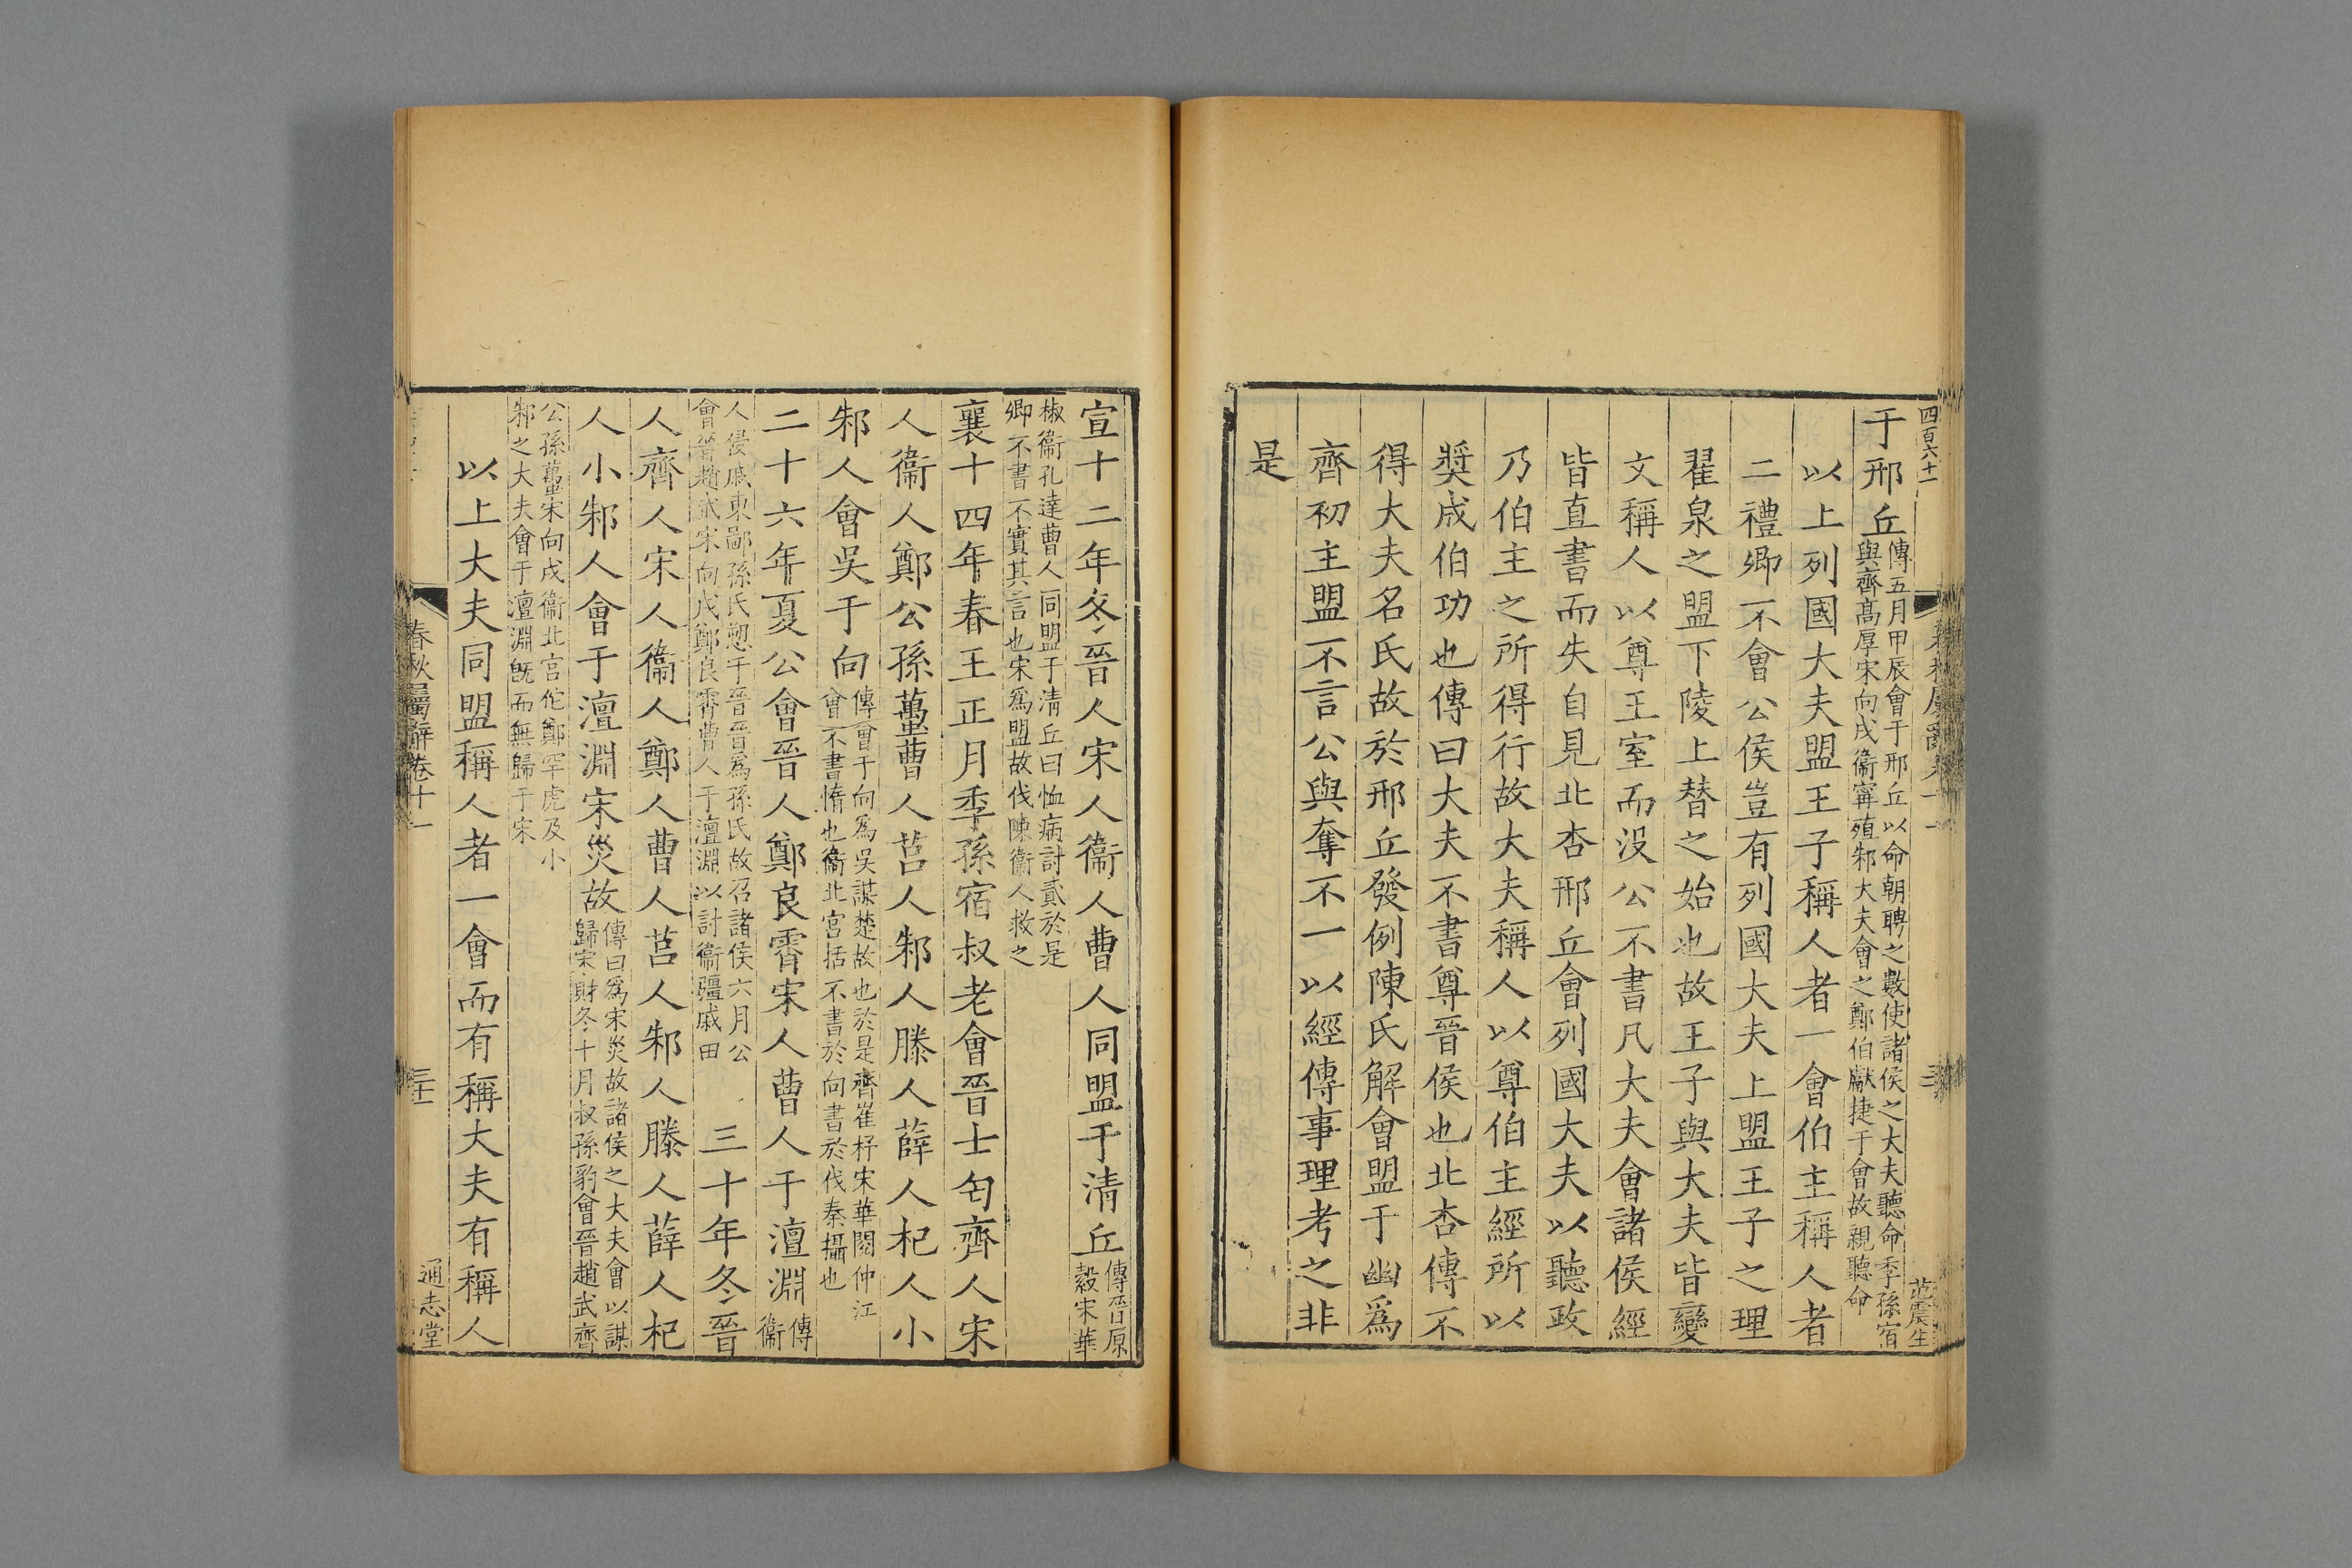 四百六十一
于邢丘傳五月甲辰會于邢丘以命朝聘之數使諸侯之大夫聽命季孫宿
與齊高厚宋向戌衞甯殖邾大夫會之鄭伯獻捷于會故親聽命
以上列國大夫盟王子稱人者一會伯主稱人者
二禮卿不會公侯豈有列國大夫上盟王子之理
翟泉之盟下陵上替之始也故王子與大夫皆變
文稱人以尊王室而没公不書凡大夫會諸侯經
皆直書而失自見北杏邢丘會列國大夫以聽政
乃伯主之所得行故大夫稱人以尊伯主經所以
奬成伯功也傳曰大夫不書尊晉侯也北杏傳不
得大夫名氏故於邢丘發例陳氏解會盟于幽爲
齊初主盟不言公與奪不一以經傳事理考之非
是
宣十二年冬晉人宋人衞人曹人同盟于清丘傳晉原
縠宋華
椒衞孔達曹人同盟于清丘曰恤病討貳於是
卿不書不實其言也宋爲盟故伐陳衞人救之
襄十四年春王正月季孫宿叔老會晉士匄齊人宋
人衞人鄭公孫蠆曹人莒人邾人滕人薛人杞人小
邾人會吳于向傳會于向爲吳謀楚故也於是齊崔杼宋華閱仲江
會不書惰也衞北宮括不書於向書於伐秦攝也
二十六年夏公會晉人鄭良霄宋人曹人于澶淵傳
衞
人侵戚東鄙孫氏愬于晉晉爲孫氏故召諸侯六月公
會晉趙武宋向戌鄭良霄曹人于澶淵以討衞疆戚田
三十年冬晉
人齊人宋人衞人鄭人曹人莒人邾人滕人薛人杞
人小邾人會于澶淵宋災故傳曰爲宋災故諸侯之大夫會以謀
歸宋財冬十月叔孫豹會晉趙武齊
公孫蠆宋向戌衞北宮佗鄭罕虎及小
邾之大夫會于澶淵旣而無歸于宋
以上大夫同盟稱人者一會而有稱大夫有稱人
春秋屬辭卷十一
三十一
通志堂